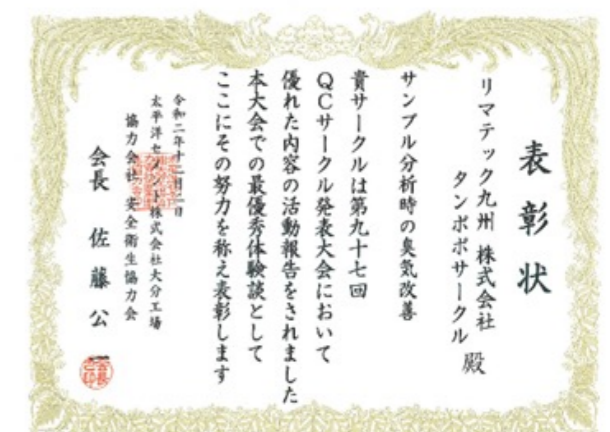 表彰状
リマテック九州 株式会社
タンポポサークル 殿
サンプル分析時の臭気改善
貴サークルは第九十七回
QCサークル発表大会において
優れた内容の活動報告をされました
本大会での最優秀体験談として
ここにその努力を称え表彰します
令和二年十二月二日
太平洋セメント株式会社大分工場
協力会社 安全衛生協力会
会長 佐藤公一